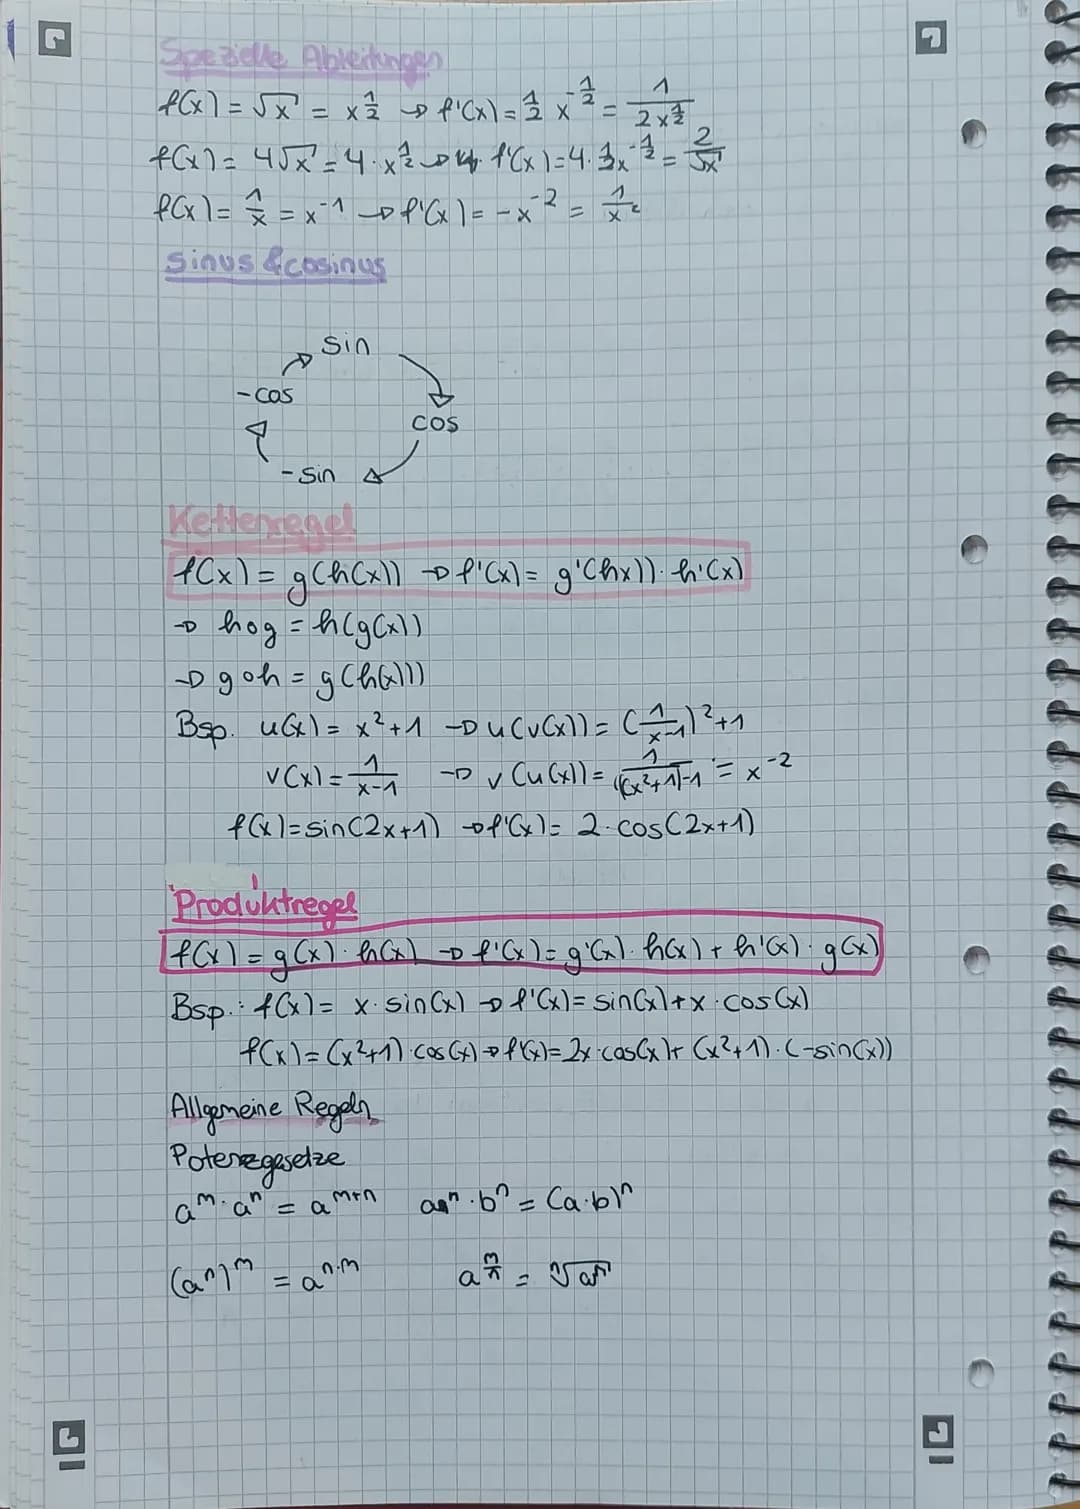 Spezielle Ableitungen
f(x) = √x = x^½ → f'(x) = ½ x^-½ = 1/(2x^½)
f(x) = 4√x = 4 · x^½ → f'(x) = 4 · ½x^-½ = 2/√x
f(x) = 1/x = x^-1 → f'(x) = -x^-2 = 1/x²
Sinus & cosinus
sin
-cos
cos
-sin
Kettenregel
f(x) = g(h(x)) → f'(x) = g'(hx)) · h'(x)
→ hog = h(g(x))
→ goh = g(h(x)))
Bsp. u(x) = x²+1 → u(v(x)) = (1/(x-1))²+1
v(x) = 1/(x-1) → v(u(x)) = 1/((x²+1)-1) = x^-2
f(x) = sin(2x+1) → f'(x) = 2 · cos(2x+1)
Produktregel
f(x) = g(x) · h(x) → f'(x) = g'(x) · h(x) + h'(x) · g(x)
Bsp.: f(x) = x · sin(x) → f'(x) = sin(x) + x · cos(x)
f(x) = (x²+1) · cos(x) → f'(x) = 2x · cos(x) + (x²+1) · (-sin(x))
Allgemeine Regeln
Potenzgesetze
a^m · a^n = a^m+n a^n · b^n = (a·b)^n
(a^n)^m = a^n·m a^(m/n) =